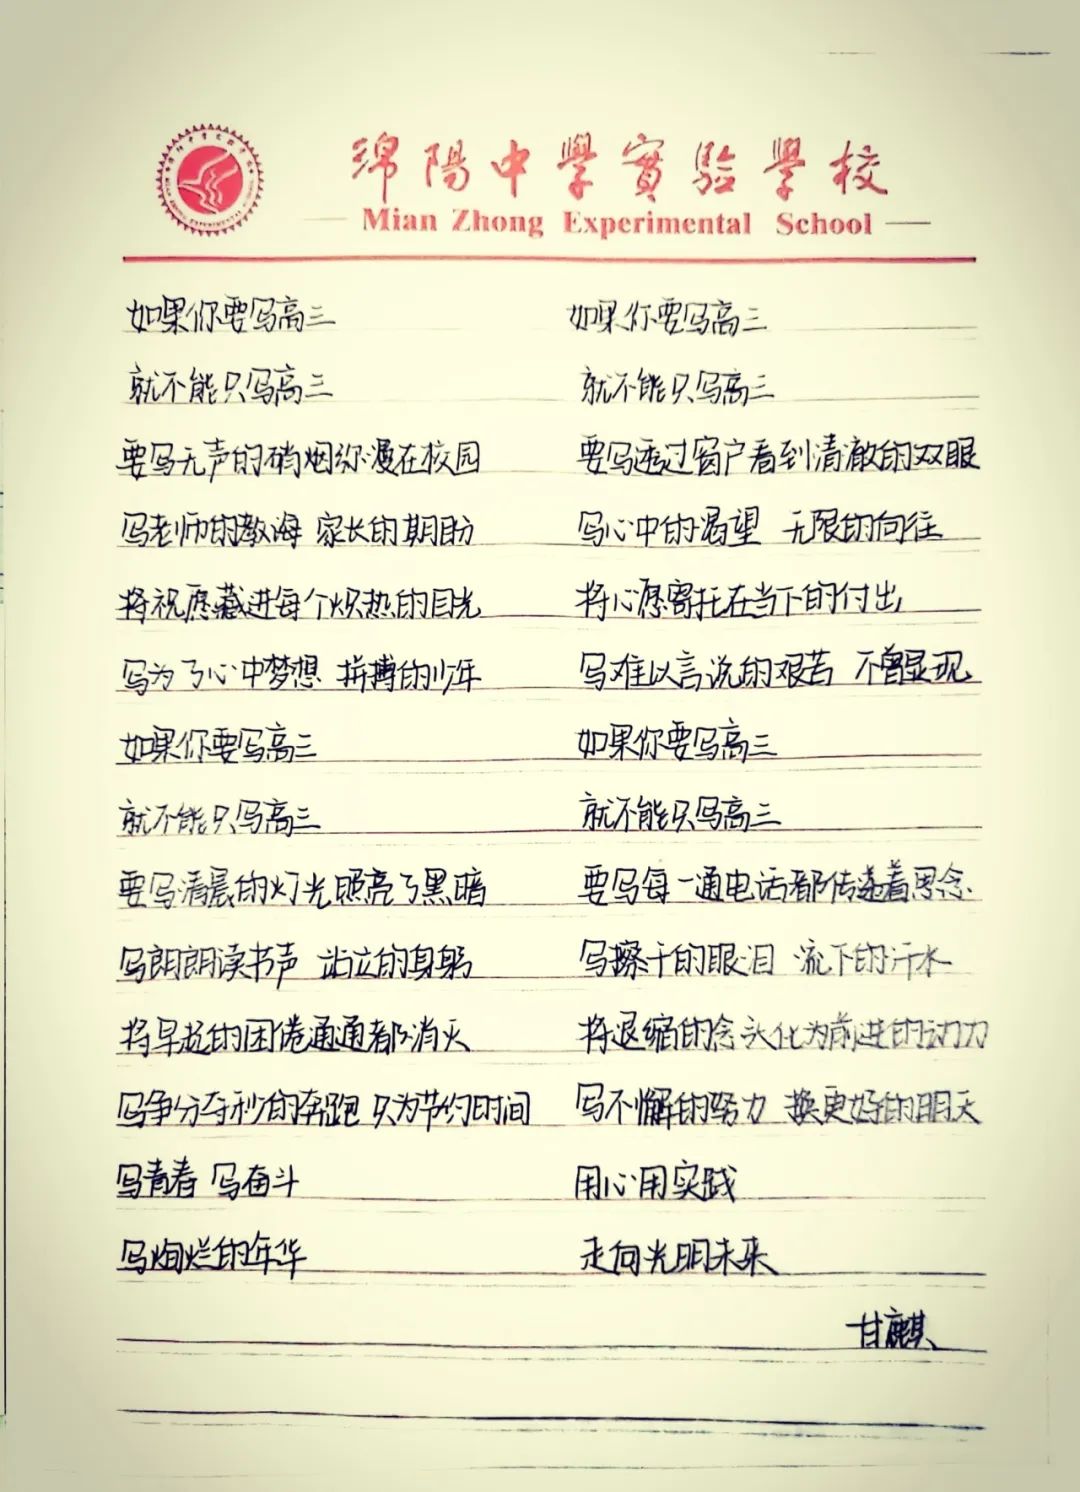 綿陽中學實驗學校
Mian Zhong Experimental School
如果你要写高三
就不能只写高三
要写无声的硝烟弥漫在校园
写老师的教海 家长的期盼
将祝愿藏进每个炽热的目光
写为了心中梦想 拼搏的少年
如果你要写高三
就不能只写高三
要写清晨的灯光照亮了黑暗
写朗朗读书声 站立的身躬
将早起的困倦通通都消灭
写争分夺秒的奔跑 只为节约时间
写青春 写奋斗
写绚烂的年华
如果你要写高三
就不能只写高三
要写透过窗户看到清澈的双眼
写心中的渴望 无限的向往
将心愿寄托在当下的付出
写难以言说的艰苦 不曾显现
如果你要写高三
就不能只写高三
要写每一通电话都传递着思念
写擦干的眼泪 流下的汗水
将退缩的念头化为前进的动力
写不懈的努力 换更好的明天
用心用实践
走向光明未来
甘麒